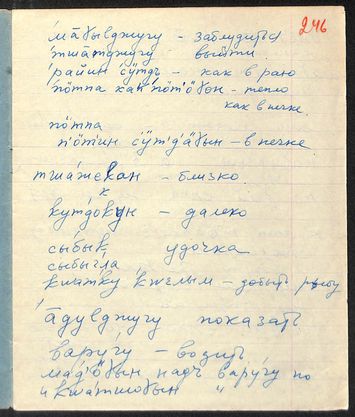 246
ма̄быlджугу – заблудиться
тша̄тджугу – выйти
райын сӱтдъ – как в раю
пӧтпа кай пӧтӧбон – тепло
как в печке
пӧтпа
пӧтин сӱтдӓбын – в печке
тша́жекан – близко
к
кутдокын – далеко
сыбык удочка
сыбы́гла
кwатку кжелым – добыть рыбу
а̄дулджугу показать
вару́гу – водить
ма̄дӧбын надъ вару́гу по
" кwа́тшобын "